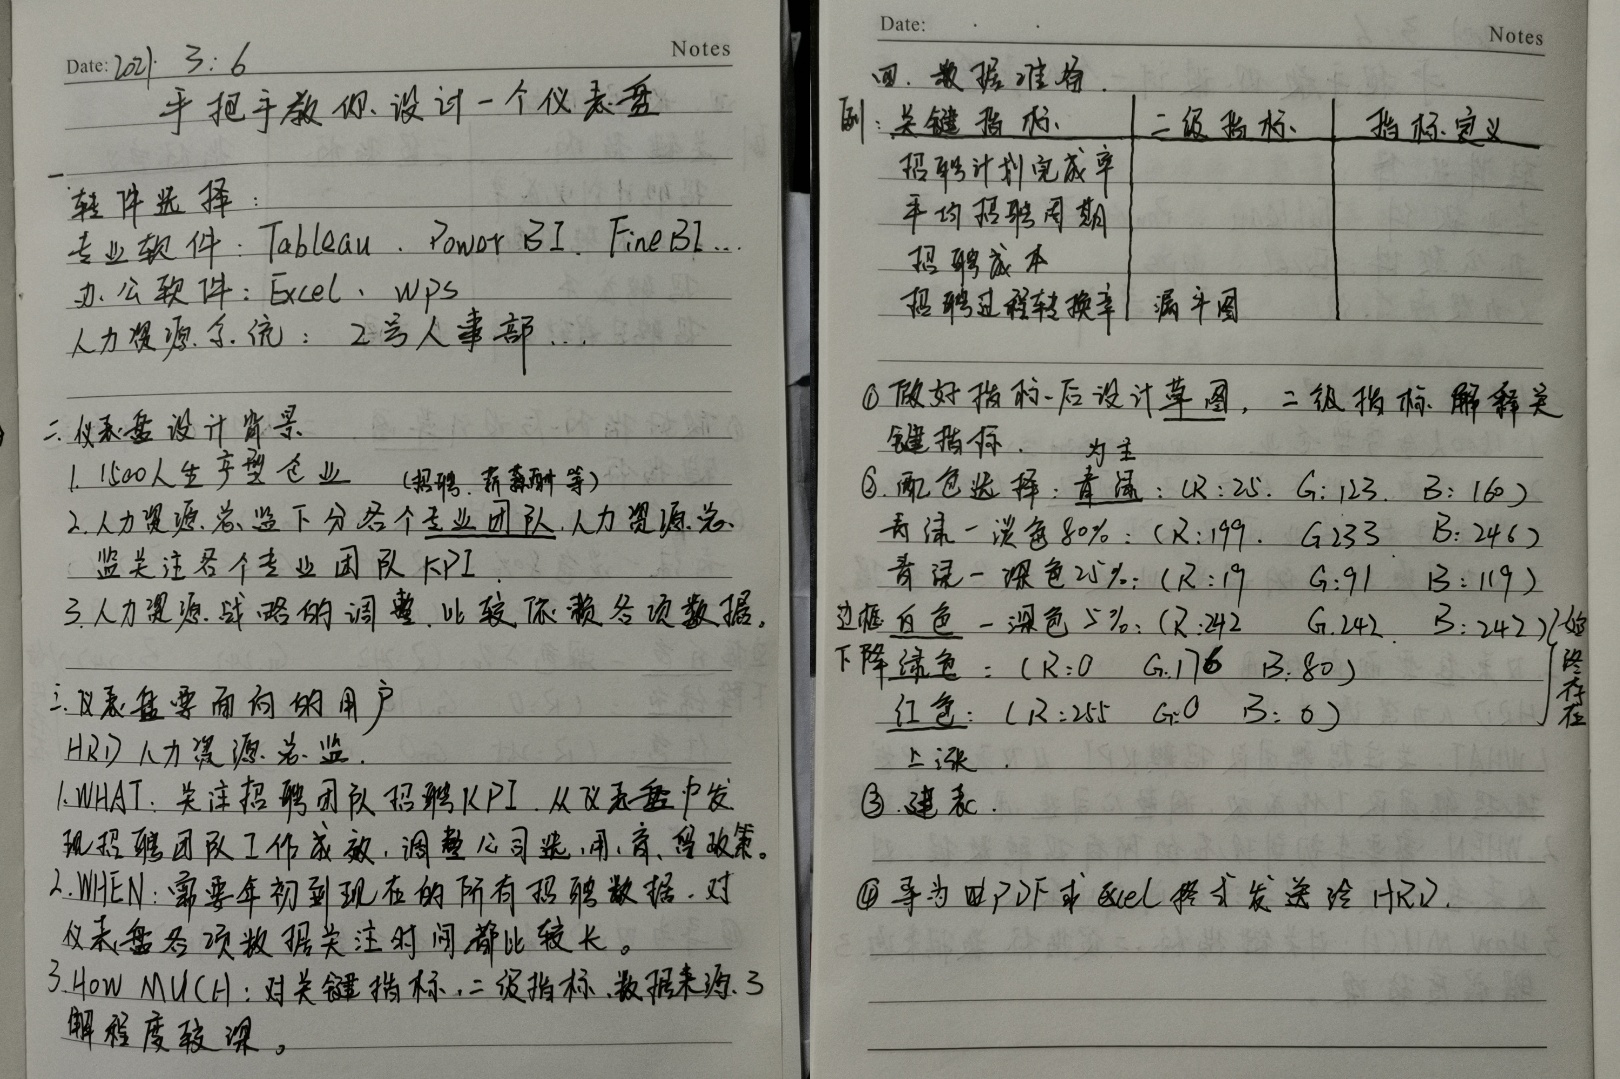 Notes
Date: 2021. 3:6
手把手教你设计一个仪表盘
一
软件选择:
专业软件: Tableau . Power BI. FineBI...
办公软件: Excel、wps
人力资源系统: 2号人事部...
二.仪表盘设计背景
1. 1500人生产型企业
(招聘、薪酬等)
2.人力资源总监下分各个专业团队,人力资源总
监关注各个专业团队KPI.
3.人力资源战略的调整,比较依赖各项数据。
三.仪表盘要面向的用户
HRD 人力资源总监.
1.WHAT: 关注招聘团队招聘KPI.从仪表盘中发
现招聘团队工作成效,调整公司选、用、育、留政策。
2.WHEN:需要年初到现在的所有招聘数据.对
仪表盘各项数据关注时间都比较长。
3.HOW MUCH: 对关键指标、二级指标、数据来源了
解程度较深。
Date: . .
Notes
四. 数据准备.
例: 关键指标、 二级指标、 指标定义
招聘计划完成率
平均招聘周期
招聘成本
招聘过程转换率 漏斗图
① 做好指标后设计草图, 二级指标解释关
键指标.
为主
②.配色选择: 青绿: (R:25. G:123. B:160)
青绿-淡色80%: (R:199. G233 B:246)
青绿-深色25%: (R:19 G:91 B:119)
边框白色-深色5%: (R:242 G.242 B:242)
下降绿色: (R:0 G.176 B:80)
红色: (R:255 G:0 B:0)
上涨.
始终存在
③.建表.
④ 导为出PDF或Excel格式发送给HRD.